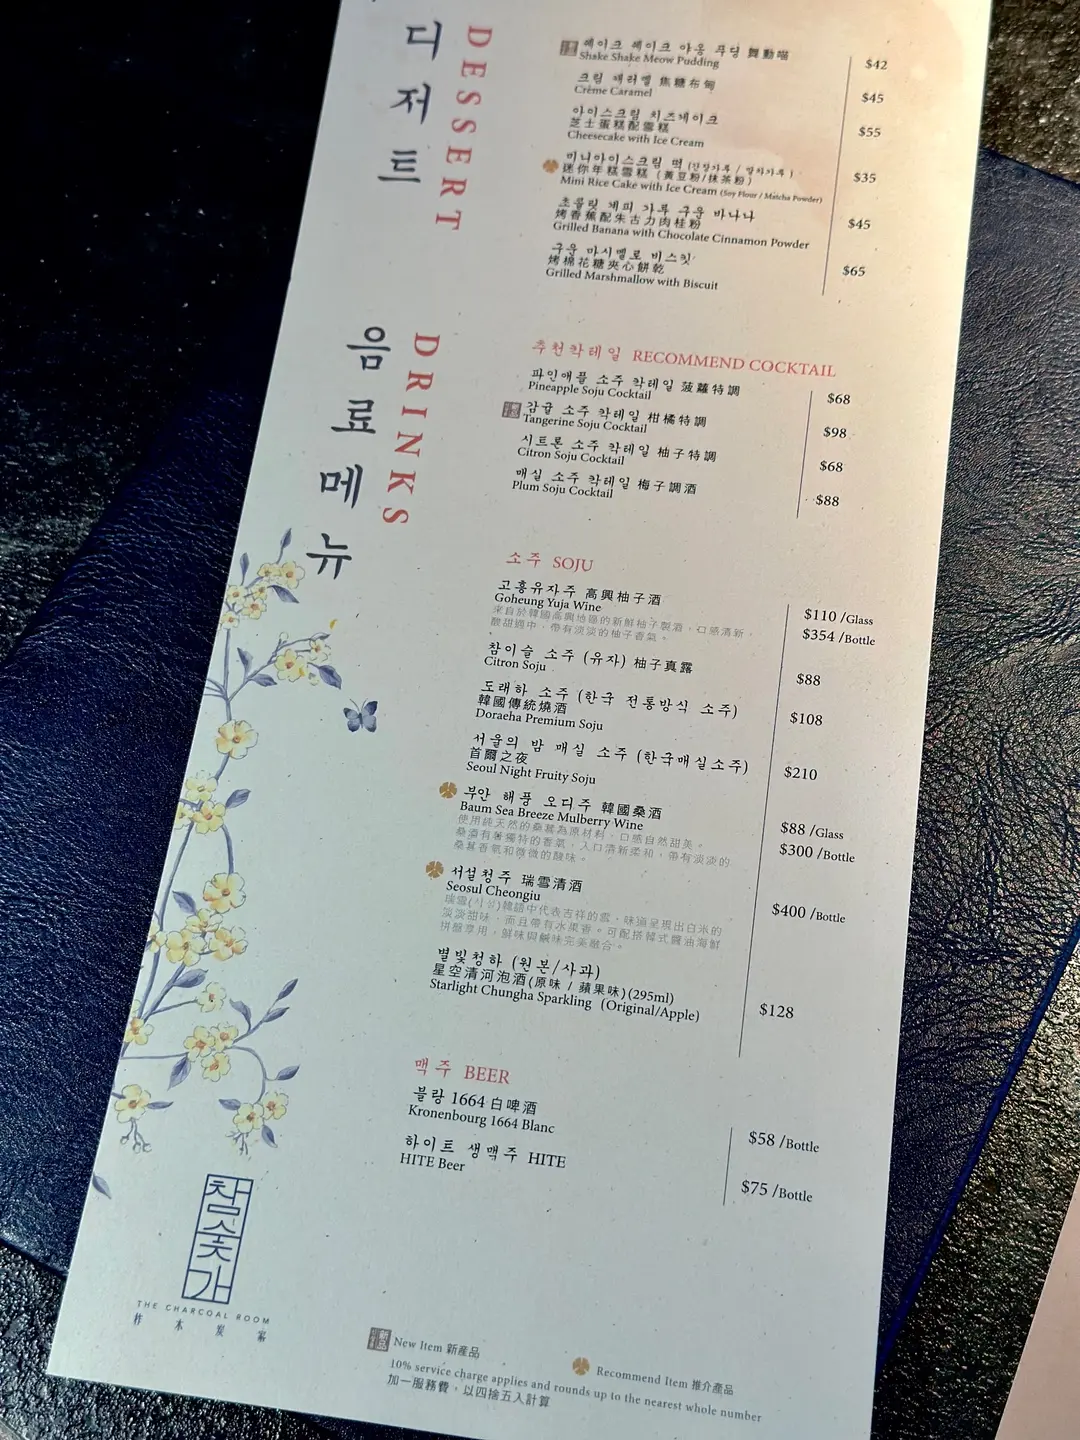 디저트
DESSERT
쉐이크 쉐이크 야옹 푸딩 舞動喵
Shake Shake Meow Pudding
$42
크림 캐러멜 焦糖布甸
Crème Caramel
$45
아이스크림 치즈케이크
芝士蛋糕配雪糕
Cheesecake with Ice Cream
$55
미니아이스크림 떡
迷你年糕雪糕 (黃豆粉/抹茶粉)
Mini Rice Cake with Ice Cream (Soy Flour / Matcha Powder)
$35
초콜릿 계피 가루 구운 바나나
烤香蕉配朱古力肉桂粉
Grilled Banana with Chocolate Cinnamon Powder
$45
구운 마시멜로 비스킷
烤棉花糖夾心餅乾
Grilled Marshmallow with Biscuit
$65
음료메뉴
DRINKS
추천칵테일 RECOMMEND COCKTAIL
파인애플 소주 칵테일 菠蘿特調
Pineapple Soju Cocktail
$68
감귤 소주 칵테일 柑橘特調
Tangerine Soju Cocktail
$98
시트론 소주 칵테일 柚子特調
Citron Soju Cocktail
$68
매실 소주 칵테일 梅子調酒
Plum Soju Cocktail
$88
소주 SOJU
고흥유자주 高興柚子酒
Goheung Yuja Wine
來自於韓國高興地區的新鮮柚子製酒，口感清新，
酸甜適中，帶有淡淡的柚子香氣。
$110 /Glass
$354 /Bottle
참이슬 소주 (유자) 柚子真露
Citron Soju
$88
도래하 소주 (한국 전통방식 소주)
韓國傳統燒酒
Doraeha Premium Soju
$108
서울의 밤 매실 소주 (한국매실소주)
首爾之夜
Seoul Night Fruity Soju
$210
부안 해풍 오디주 韓國桑酒
Baum Sea Breeze Mulberry Wine
使用純天然的桑葚為原材料，口感自然甜美。
桑酒有著獨特的香氣，入口清新柔和，帶有淡淡的
桑葚香氣和微微的酸味。
$88 /Glass
$300 /Bottle
서설청주 瑞雪清酒
Seosul Cheongju
瑞雪(서설)韓語中代表吉祥的雪，味道呈現出白米的
淡淡甜味，而且帶有水果香。可配搭韓式醬油海鮮
拼盤享用，鮮味與鹹味完美融合。
$400 /Bottle
별빛청하 (원본/사과)
星空清河泡酒(原味 / 蘋果味)(295ml)
Starlight Chungha Sparkling (Original/Apple)
$128
맥주 BEER
블랑 1664 白啤酒
Kronenbourg 1664 Blanc
$58 /Bottle
하이트 생맥주 HITE
HITE Beer
$75 /Bottle
참숯가
THE CHARCOAL ROOM
柞木炭家
新品 New Item 新產品
Recommend Item 推介產品
10% service charge applies and rounds up to the nearest whole number
加一服務費，以四捨五入計算